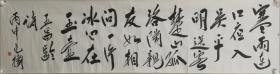 寒雨連
江夜入
吳平
明送客
楚山孤
洛陽親
友如相
問一片
冰心在
玉壺
王昌齡
詩
丙申